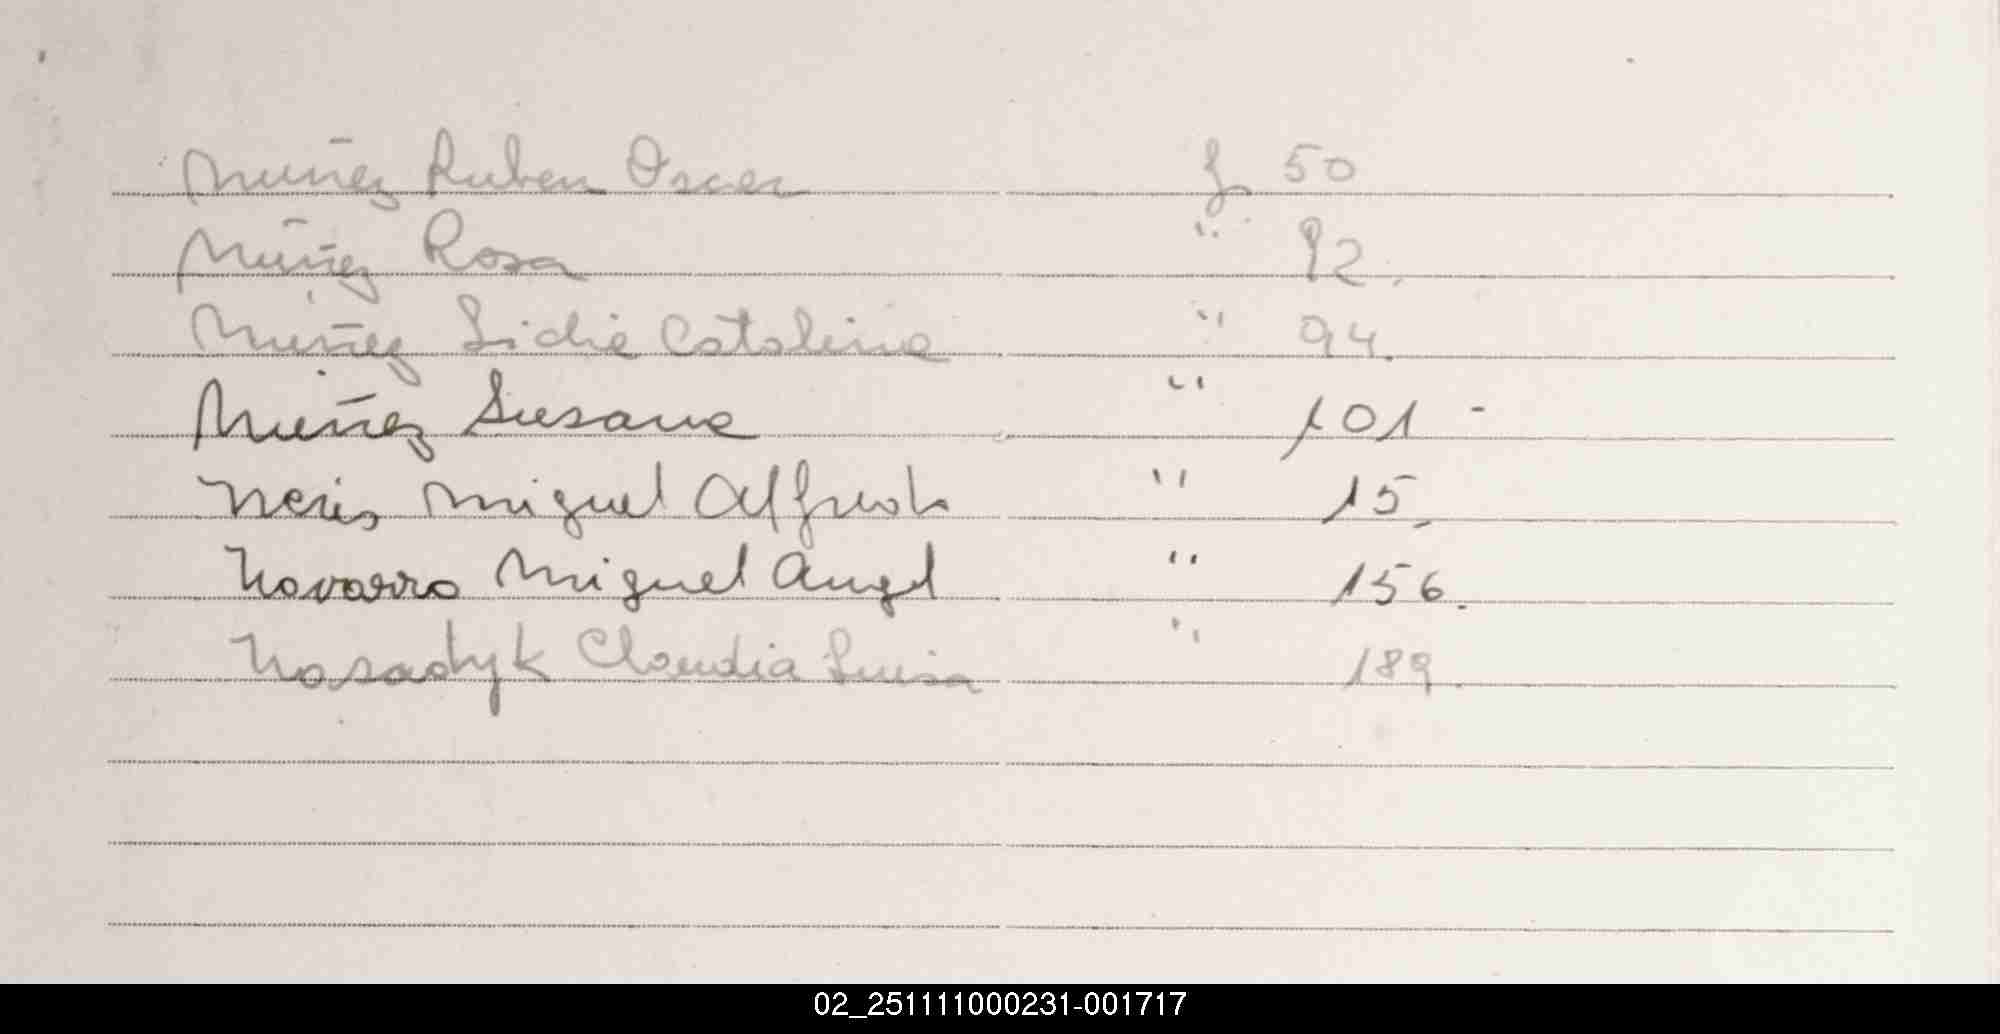 Muñez Ruben Oscar f 50
Muñez Rosa " 92.
Muñez Lidia Catalina " 94.
Muñez Susana " 101-
Neris Miguel Alfredo " 15.
Navarro Miguel Angel " 156.
Nosadyk Claudia Luisa " 189.
02_251111000231-001717